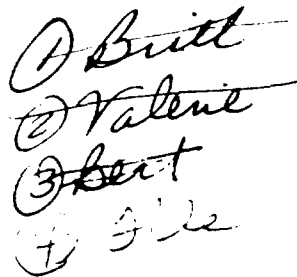 ① Britt
② Valerie
③ Bert
④ File